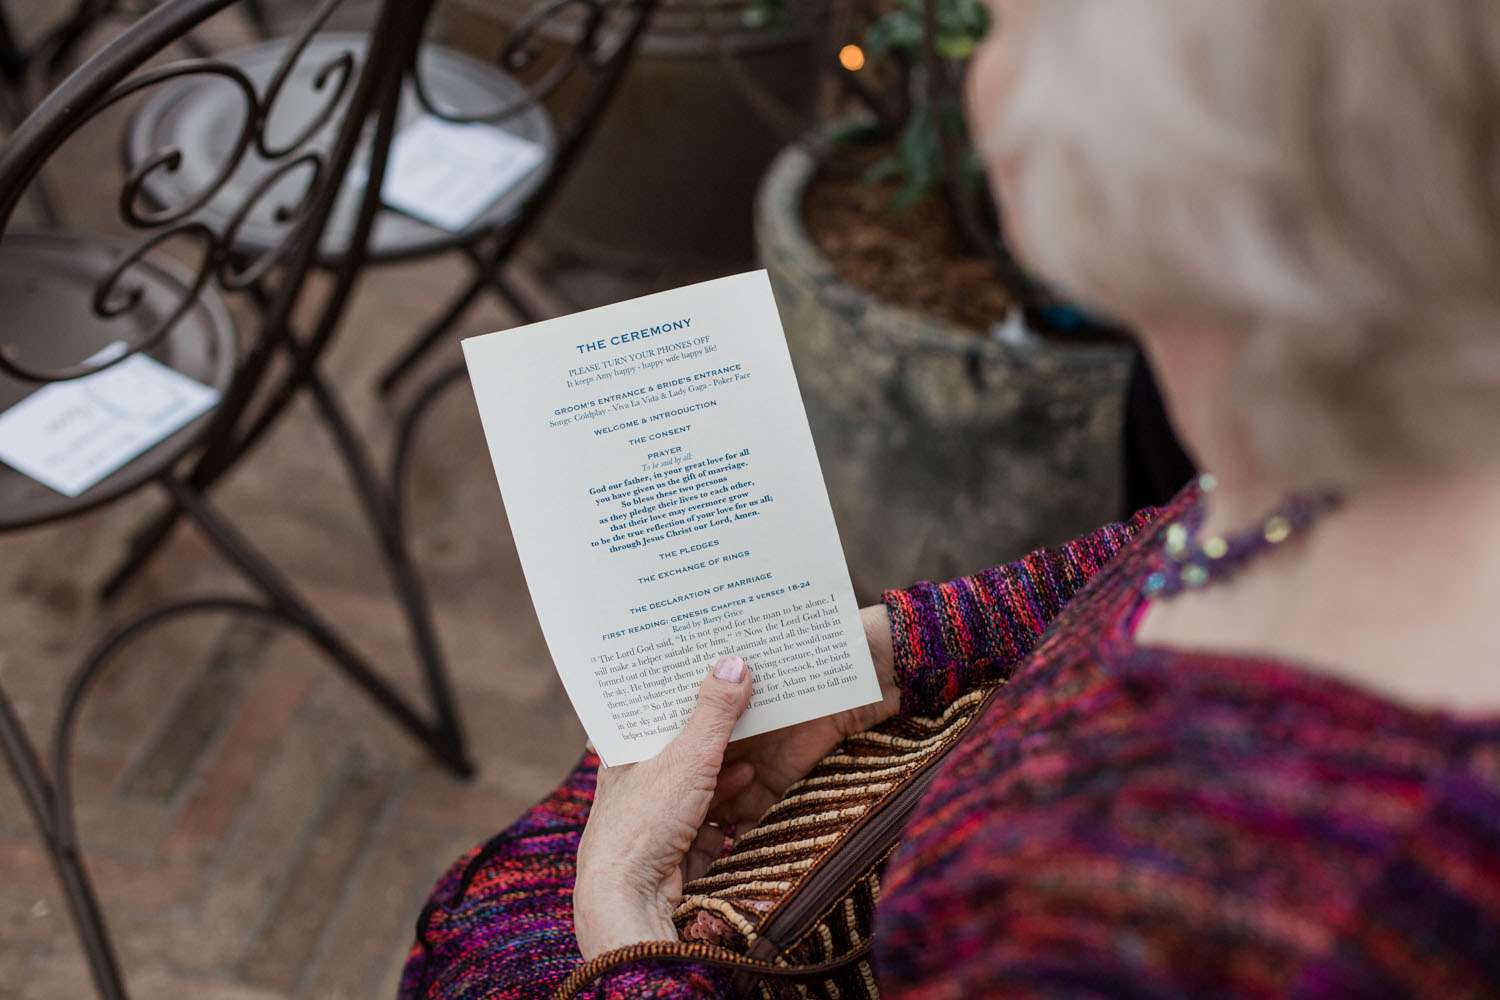 THE CEREMONY
PLEASE TURN YOUR PHONES OFF
It keeps Amy happy - happy wife happy life!
GROOM'S ENTRANCE & BRIDE'S ENTRANCE
Songs: Coldplay - Viva La Vida & Lady Gaga - Poker Face
WELCOME & INTRODUCTION
THE CONSENT
PRAYER
To be said by all:
God our father, in your great love for all
you have given us the gift of marriage.
So bless these two persons
as they pledge their lives to each other,
that their love may evermore grow
to be the true reflection of your love for us all;
through Jesus Christ our Lord, Amen.
THE PLEDGES
THE EXCHANGE OF RINGS
THE DECLARATION OF MARRIAGE
FIRST READING: GENESIS CHAPTER 2 VERSES 18-24
Read by Barry Grice
18 The Lord God said, "It is not good for the man to be alone. I
will make a helper suitable for him." 19 Now the Lord God had
formed out of the ground all the wild animals and all the birds in
the sky. He brought them to the see what he would name
them; and whatever the man living creature, that was
its name. 20 So the man all the livestock, the birds
in the sky and all the for Adam no suitable
helper was found. 21 caused the man to fall into